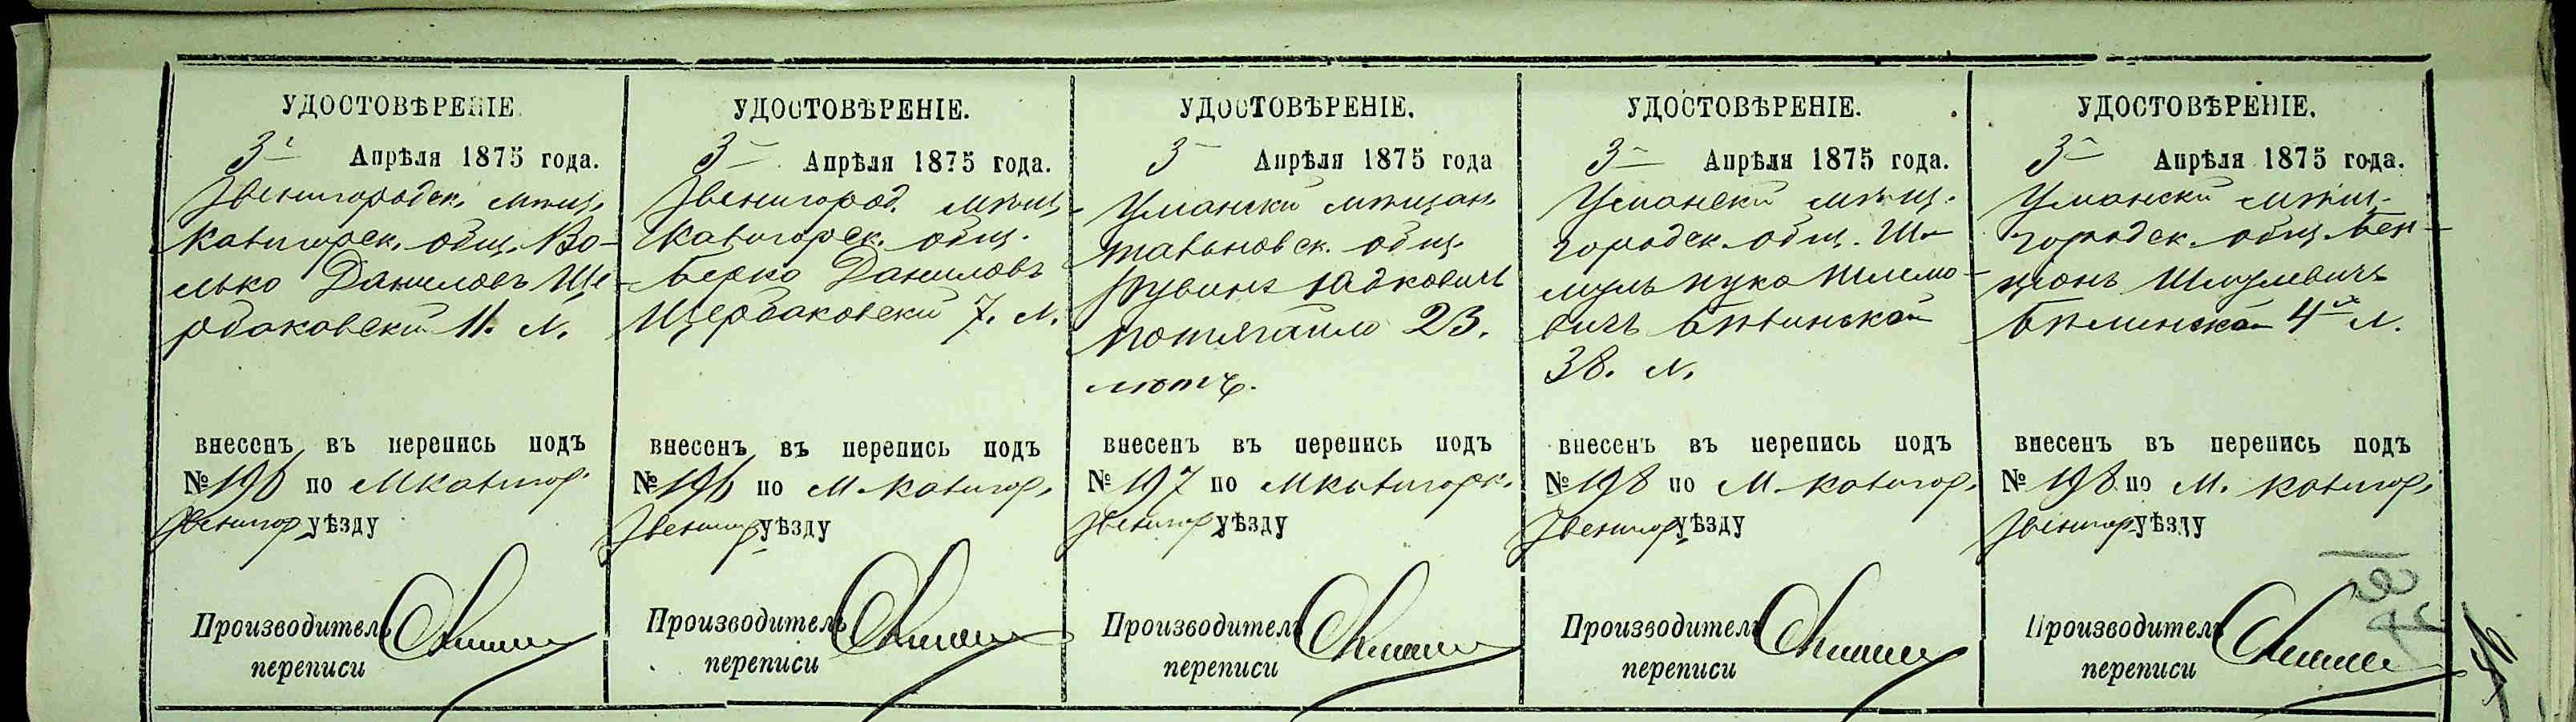 УДОСТОВѢРЕНІЕ.
3 Апрѣля 1875 года.
Звенигородск. мѣщ.
Катигорск. общ. Во-
лько Даниловъ Ще-
рбаковскій 11. л.
внесенъ въ перепись подъ
№ 196 по М Катигор.
Звенигор уѣзду
Производитель
переписи
УДОСТОВѢРЕНІЕ.
3 Апрѣля 1875 года.
Звенигород. мѣщ.
Катигорск. общ.
Берко Даниловъ
Щербаковскій 7. л.
внесенъ въ перепись подъ
№ 196 по М. Катигор.
Звениг уѣзду
Производитель
переписи
УДОСТОВѢРЕНІЕ.
3 Апрѣля 1875 года
Уманскій мѣщан.
общ.
Рувинъ Юдковичъ
Потягайло 23.
лѣтъ.
внесенъ въ перепись подъ
№ 197 по М Катигорк.
Звенигор уѣзду
Производитель
переписи
УДОСТОВѢРЕНІЕ.
3 Апрѣля 1875 года.
Уманскій мѣщ.
городск. общ. Ш-
муль Шлемо-
вичъ
38. л.
внесенъ въ перепись подъ
№ 198 по М. Катигор.
Звенигор уѣзду
Производитель
переписи
УДОСТОВѢРЕНІЕ.
3 Апрѣля 1875 года.
Уманскій мѣщ.
городск. общ. Бен-
ціонъ Шмулевичъ
4 л.
внесенъ въ перепись подъ
№ 198 по М. Катигор.
Звенигор уѣзду
Производитель
переписи